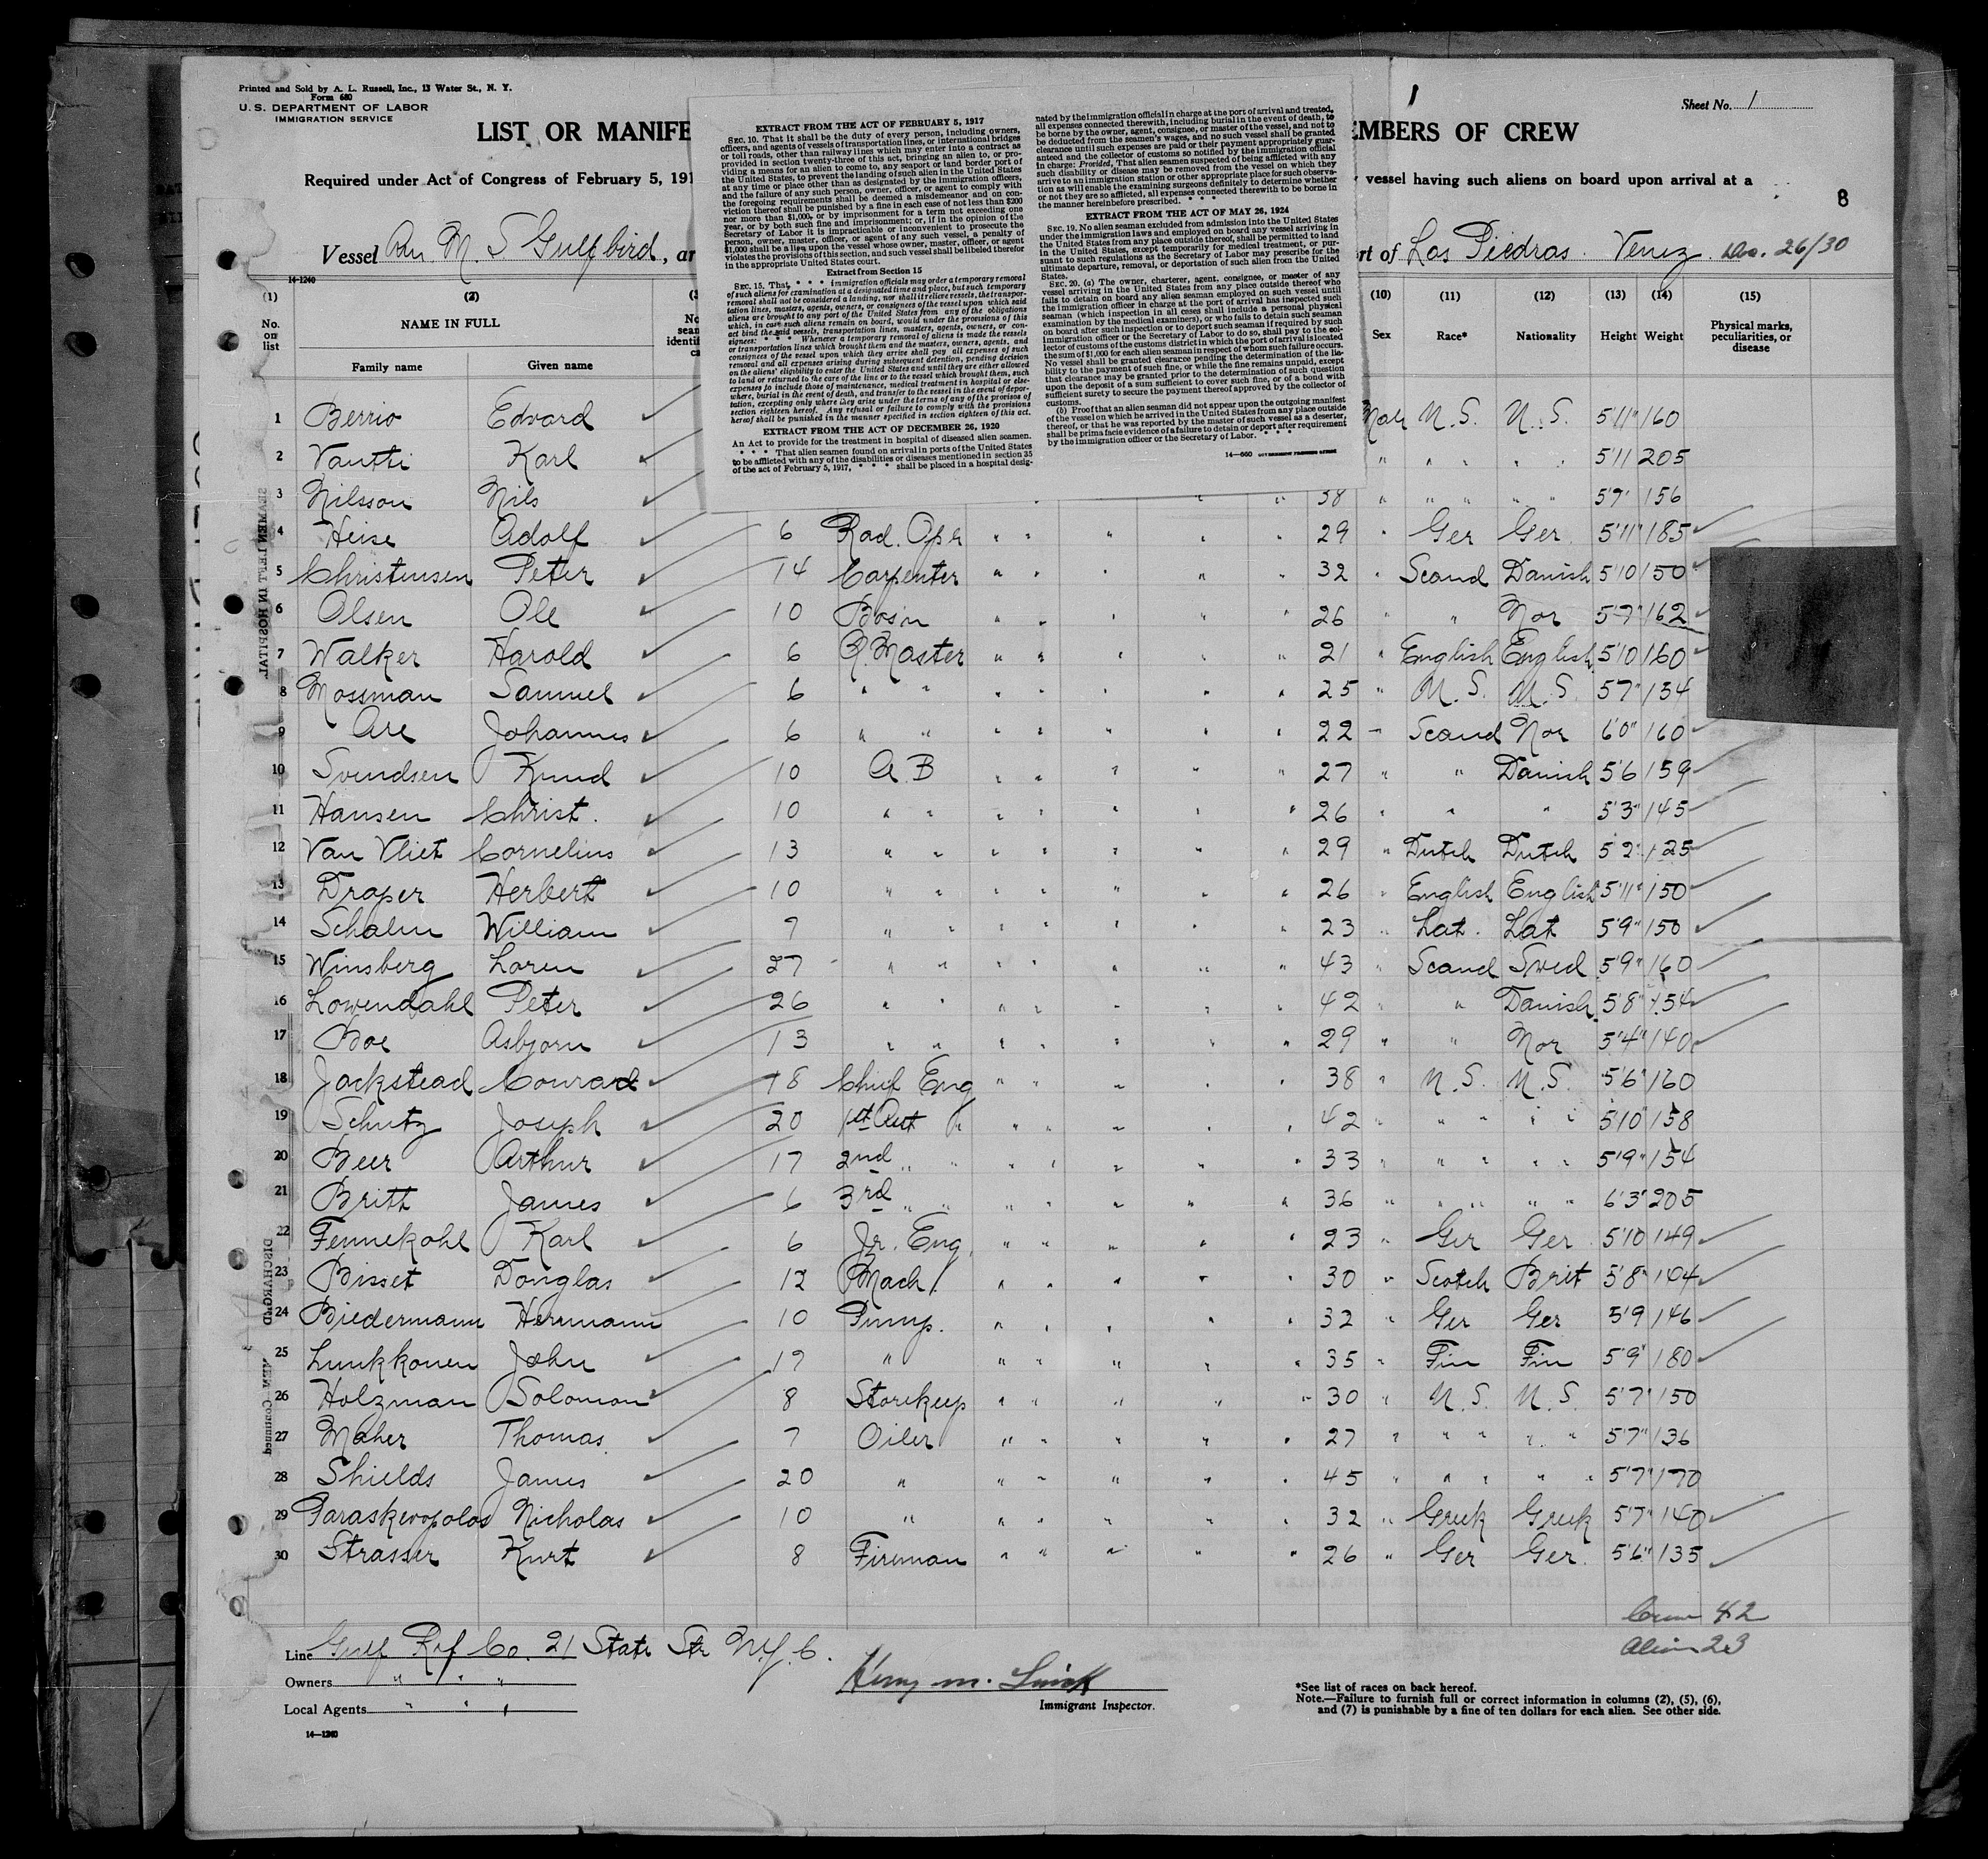 Printed and Sold by A. L. Russell, Inc., 13 Water St., N. Y.
Form 680
U. S. DEPARTMENT OF LABOR
IMMIGRATION SERVICE
Sheet No. 1
LIST OR MANIFE
EMBERS OF CREW
Required under Act of Congress of February 5, 191
vessel having such aliens on board upon arrival at a
8
Vessel Am M. S Gulfbird, ar
rt of Las Piedras Venez. Dec. 26/30
EXTRACT FROM THE ACT OF FEBRUARY 5, 1917
SEC. 10. That it shall be the duty of every person, including owners,
officers, and agents of vessels of transportation lines, or international bridges
or toll roads, other than railway lines which may enter into a contract as
provided in section twenty-three of this act, bringing an alien to, or pro-
viding a means for an alien to come to, any seaport or land border port of
the United States, to prevent the landing of such alien in the United States
at any time or place other than as designated by the immigration officers,
and the failure of any such person, owner, officer, or agent to comply with
the foregoing requirements shall be deemed a misdemeanor and on con-
viction thereof shall be punished by a fine in each case of not less than $200
nor more than $1,000, or by imprisonment for a term not exceeding one
year, or by both such fine and imprisonment; or, if in the opinion of the
Secretary of Labor it is impracticable or inconvenient to prosecute the
person, owner, master, officer, or agent of any such vessel, a penalty of
$1,000 shall be a lien upon the vessel whose owner, master, officer, or agent
violates the provisions of this section, and such vessel shall be libeled therefor
in the appropriate United States court.
Extract from Section 15
SEC. 15. That, * * * immigration officials may order a temporary removal
of such aliens for examination at a designated time and place, but such temporary
removal shall not be considered a landing, nor shall it relieve vessels, the transpor-
tation lines, masters, agents, owners, or consignees of the vessel upon which said
aliens are brought to any port of the United States from any of the obligations
which, in case such aliens remain on board, would under the provisions of this
act bind the said vessels, transportation lines, masters, agents, owners, or con-
signees: * * * Whenever a temporary removal of aliens is made the vessels
or transportation lines which brought them and the masters, owners, agents, and
consignees of the vessel upon which they arrive shall pay all expenses of such
removal and all expenses arising during subsequent detention, pending decision
on the aliens' eligibility to enter the United States and until they are either allowed
to land or returned to the care of the line or to the vessel which brought them, such
expenses to include those of maintenance, medical treatment in hospital or else-
where, burial in the event of death, and transfer to the vessel in the event of depor-
tation, excepting only where they arise under the terms of any of the provisos of
section eighteen hereof. Any refusal or failure to comply with the provisions
hereof shall be punished in the manner specified in section eighteen of this act.
EXTRACT FROM THE ACT OF DECEMBER 26, 1920
An Act to provide for the treatment in hospital of diseased alien seamen.
* * * That alien seamen found on arrival in ports of the United States
to be afflicted with any of the disabilities or diseases mentioned in section 35
of the act of February 5, 1917, * * * shall be placed in a hospital desig-
nated by the immigration official in charge at the port of arrival and treated,
all expenses connected therewith, including burial in the event of death, to
be borne by the owner, agent, consignee, or master of the vessel, and not to
be deducted from the seamen's wages, and no such vessel shall be granted
clearance until such expenses are paid or their payment appropriately guar-
anteed and the collector of customs so notified by the immigration official
in charge: Provided, That alien seamen suspected of being afflicted with any
such disability or disease may be removed from the vessel on which they
arrive to an immigration station or other appropriate place for such observa-
tion as will enable the examining surgeons definitely to determine whether
or not they are so afflicted, all expenses connected therewith to be borne in
the manner hereinbefore prescribed. * * *
EXTRACT FROM THE ACT OF MAY 26, 1924
SEC. 19. No alien seaman excluded from admission into the United States
under the immigration laws and employed on board any vessel arriving in
the United States from any place outside thereof, shall be permitted to land
in the United States, except temporarily for medical treatment, or pur-
suant to such regulations as the Secretary of Labor may prescribe for the
ultimate departure, removal, or deportation of such alien from the United
States.
SEC. 20. (a) The owner, charterer, agent, consignee, or master of any
vessel arriving in the United States from any place outside thereof who
fails to detain on board any alien seaman employed on such vessel until
the immigration officer in charge at the port of arrival has inspected such
seaman (which inspection in all cases shall include a personal physical
examination by the medical examiners), or who fails to detain such seaman
on board after such inspection or to deport such seaman if required by such
immigration officer or the Secretary of Labor to do so, shall pay to the col-
lector of customs of the customs district in which the port of arrival is located
the sum of $1,000 for each alien seaman in respect of whom such failure occurs.
No vessel shall be granted clearance pending the determination of the lia-
bility to the payment of such fine, or while the fine remains unpaid, except
that clearance may be granted prior to the determination of such question
upon the deposit of a sum sufficient to cover such fine, or of a bond with
sufficient surety to secure the payment thereof approved by the collector of
customs.
(b) Proof that an alien seaman did not appear upon the outgoing manifest
of the vessel on which he arrived in the United States from any place outside
thereof, or that he was reported by the master of such vessel as a deserter,
shall be prima facie evidence of a failure to detain or deport after requirement
by the immigration officer or the Secretary of Labor. * * *
14—660 GOVERNMENT PRINTING OFFICE
14-1240
(1) (2) (10) (11) (12) (13) (14) (15)
No. on list NAME IN FULL Sex Race* Nationality Height Weight Physical marks, peculiarities, or disease
Family name Given name
1 Berrio Edvard Male U.S. U.S. 5'11" 160
2 Vantti Karl " " " " " 5'11 205
3 Nilsson Nils 38 " " " " " 5'7" 156
4 Heise Adolf 6 Rad. Opr " " " " " 29 " Ger Ger 5'11" 185
5 Christensen Peter 14 Carpenter " " " " " 32 " Scand Danish 5'10 150
6 Olsen Ole 10 Bos'n " " " " " 26 " " Nor 5'7" 162
7 Walker Harold 6 Q. Master " " " " " 21 " English English 5'10 160
8 Mossman Samuel 6 " " " " " " " 25 " U.S. U.S. 5'7" 134
9 Are Johannes 6 " " " " " " " 22 " Scand Nor 6'0" 160
10 Svendsen Knud 10 A.B " " " " " 27 " " Danish 5'6 159
11 Hansen Christ. 10 " " " " " " " 26 " " " 5'3" 145
12 Van Vliet Cornelius 13 " " " " " " " 29 " Dutch Dutch 5'2" 125
13 Draper Herbert 10 " " " " " " " 26 " English English 5'11" 150
14 Schalm William 7 " " " " " " " 23 " Lat. Lat 5'9" 150
15 Winsberg Loren 27 " " " " " " " 43 " Scand Swed 5'9" 160
16 Lowendahl Peter 26 " " " " " " " 42 " " Danish 5'8" 154
17 Boe Asbjorn 13 " " " " " " " 29 " " Nor 5'4" 140
18 Jackstead Conrad 18 Chief Eng " " " " " 38 " U.S. U.S. 5'6" 160
19 Schutz Joseph 20 1st Asst " " " " " " 42 " " " " " 5'10" 158
20 Beer Arthur 17 2nd " " " " " " " 33 " " " " " 5'9" 154
21 Britt James 6 3rd " " " " " " " 36 " " " " " 6'3" 205
22 Fennekohl Karl 6 Jr. Eng. " " " " " 23 " Ger Ger 5'10 149
23 Bisset Douglas 12 Mach. " " " " " 30 " Scotch Brit 5'8"
24 Biedermann Hermann 10 Pump. " " " " " 32 " Ger Ger 5'9 146
25 Lunkkonen John 17 " " " " " " 35 " Fin Fin 5'9" 180
26 Holzman Solomon 8 Storekeep " " " " " 30 " U.S. U.S. 5'7" 150
27 Maher Thomas 7 Oiler " " " " " 27 " " " " " 5'7" 136
28 Shields James 20 " " " " " " 45 " " " " " 5'7" 170
29 Paraskevopolos Nicholas 10 " " " " " " 32 " Greek Greek 5'7" 140
30 Strasser Kurt 8 Fireman " " " " " 26 " Ger Ger. 5'6" 135
Crew 42
Alien 23
Line Gulf Ref Co. 21 State Str N.Y.C.
Owners " " "
Local Agents " " "
Immigrant Inspector.
14—1240
*See list of races on back hereof.
Note.—Failure to furnish full or correct information in columns (2), (5), (6),
and (7) is punishable by a fine of ten dollars for each alien. See other side.